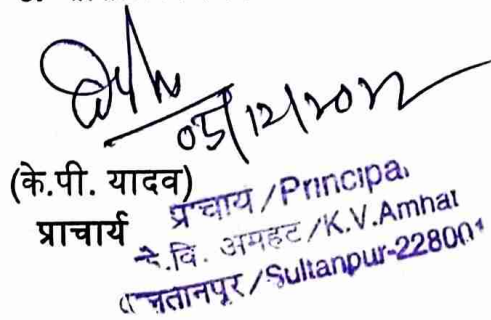 05/12/2022
(के.पी. यादव)
प्राचार्य
प्रचाय / Principa
के.वि. अमहट / K.V.Amhat
तानपूर / Sultanpur-228001